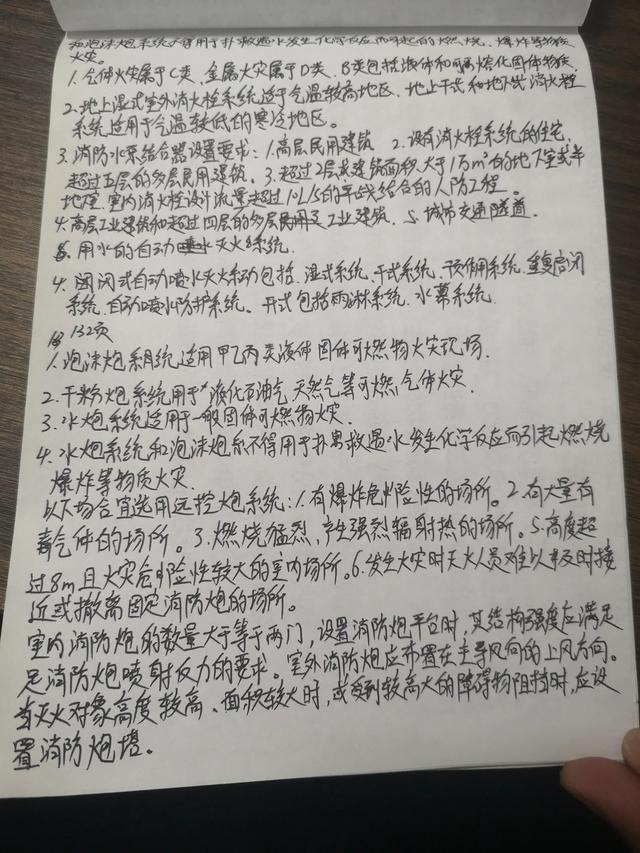 和泡沫炮系统不得用于扑救遇水发生化学反应而引起的燃烧、爆炸等物质
火灾。
1. 气体火灾属于C类、金属火灾属于D类、B类包括液体和可熔化固体物质
2. 地上湿式室外消火栓系统适于气温较高地区、地上干式和地下式消火栓
系统适用于气温较低的寒冷地区。
3. 消防水泵结合器设置要求：1.高层民用建筑 2.设有消火栓系统的住宅、
超过五层的多层民用建筑、3.超过2层或建筑面积大于1万m²的地下室或半
地下室、室内消火栓设计流量超过10L/S的平战结合的人防工程。
4. 高层工业建筑和超过四层的多层工业建筑、5.城市交通隧道、
6. 用水的自动灭火系统、
4. 闭式自动喷水灭火系统包括、湿式系统、干式系统、预作用系统、重复启闭
系统、自动喷水防护系统。开式包括雨淋系统、水幕系统.
132页
1. 泡沫炮系统适用甲乙丙类液体固体可燃物火灾现场.
2. 干粉炮系统用于液化石油气 天然气等可燃气体火灾.
3. 水炮系统适用于一般固体可燃物火灾.
4. 水炮系统和泡沫炮系不得用于扑救遇水发生化学反应而引起燃烧
爆炸等物质火灾.
以下场合宜选用远控炮系统:1.有爆炸危险性的场所。2.有大量有
毒气体的场所。3.燃烧猛烈,产生强烈辐射热的场所。5.高度超
过8m且火灾危险性较大的室内场所。6.发生火灾时灭火人员难以及时接
近或撤离固定消防炮的场所。
室内消防炮的数量大于等于两门,设置消防炮平台时,其结构强度应满足
足消防炮喷射反力的要求。室外消防炮应布置在主导风向的上风方向。
当灭火对象高度较高、面积较大时,或受到较高大的障碍物阻挡时,应设
置消防炮塔。